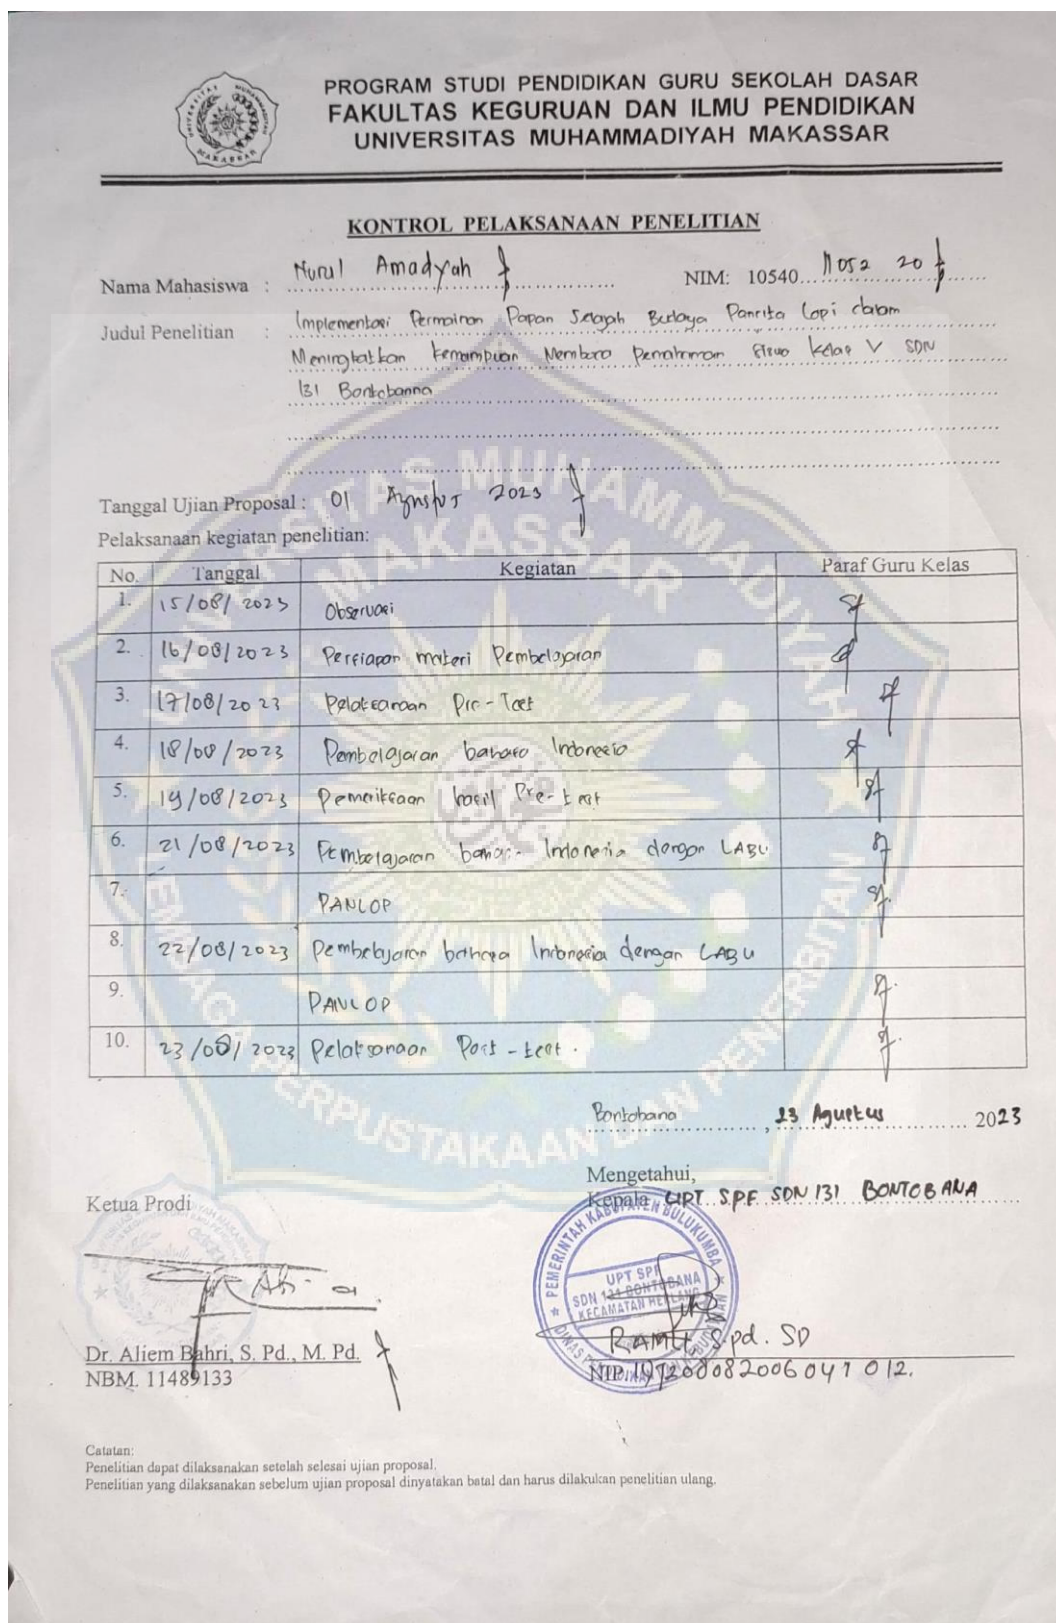 PROGRAM STUDI PENDIDIKAN GURU SEKOLAH DASAR
FAKULTAS KEGURUAN DAN ILMU PENDIDIKAN
UNIVERSITAS MUHAMMADIYAH MAKASSAR
KONTROL PELAKSANAAN PENELITIAN
Nama Mahasiswa : Nurul Amadyah NIM: 10540 11052 20
Judul Penelitian : Implementasi Permainan Papan Selajah Budaya Panrita Lopi dalam
Meningkatkan Kemampuan Membaca Pemahaman Siswa Kelas V SDN
131 Bontobanna
Tanggal Ujian Proposal : 01 Agustus 2023
Pelaksanaan kegiatan penelitian:
No. Tanggal Kegiatan Paraf Guru Kelas
1. 15/08/2023 Observasi
2. 16/08/2023 Persiapan materi Pembelajaran
3. 17/08/2023 Pelaksanaan Pre-Test
4. 18/08/2023 Pembelajaran bahasa Indonesia
5. 19/08/2023 Pemeriksaan hasil Pre-test
6. 21/08/2023 Pembelajaran bahasa Indonesia dengan LABU
7. PANLOP
8. 22/08/2023 Pembelajaran bahasa Indonesia dengan LABU
9. PANLOP
10. 23/08/2023 Pelaksanaan Post-test.
Bontobana, 23 Agustus 2023
Mengetahui,
Ketua Prodi Kepala UPT SPF SDN 131 BONTOBANA
PEMERINTAH KABUPATEN BULUKUMBA
UPT SPF
SDN 131 BONTOBANA
KECAMATAN HERLANG
RAMLI, S.pd. SD
Dr. Aliem Bahri, S. Pd., M. Pd.
NBM. 11489133
Catatan:
Penelitian dapat dilaksanakan setelah selesai ujian proposal.
Penelitian yang dilaksanakan sebelum ujian proposal dinyatakan batal dan harus dilakukan penelitian ulang.
UNIVERSITAS MUHAMMADIYAH
MAKASSAR
LEMBAGA PERPUSTAKAAN DAN PENERBITAN